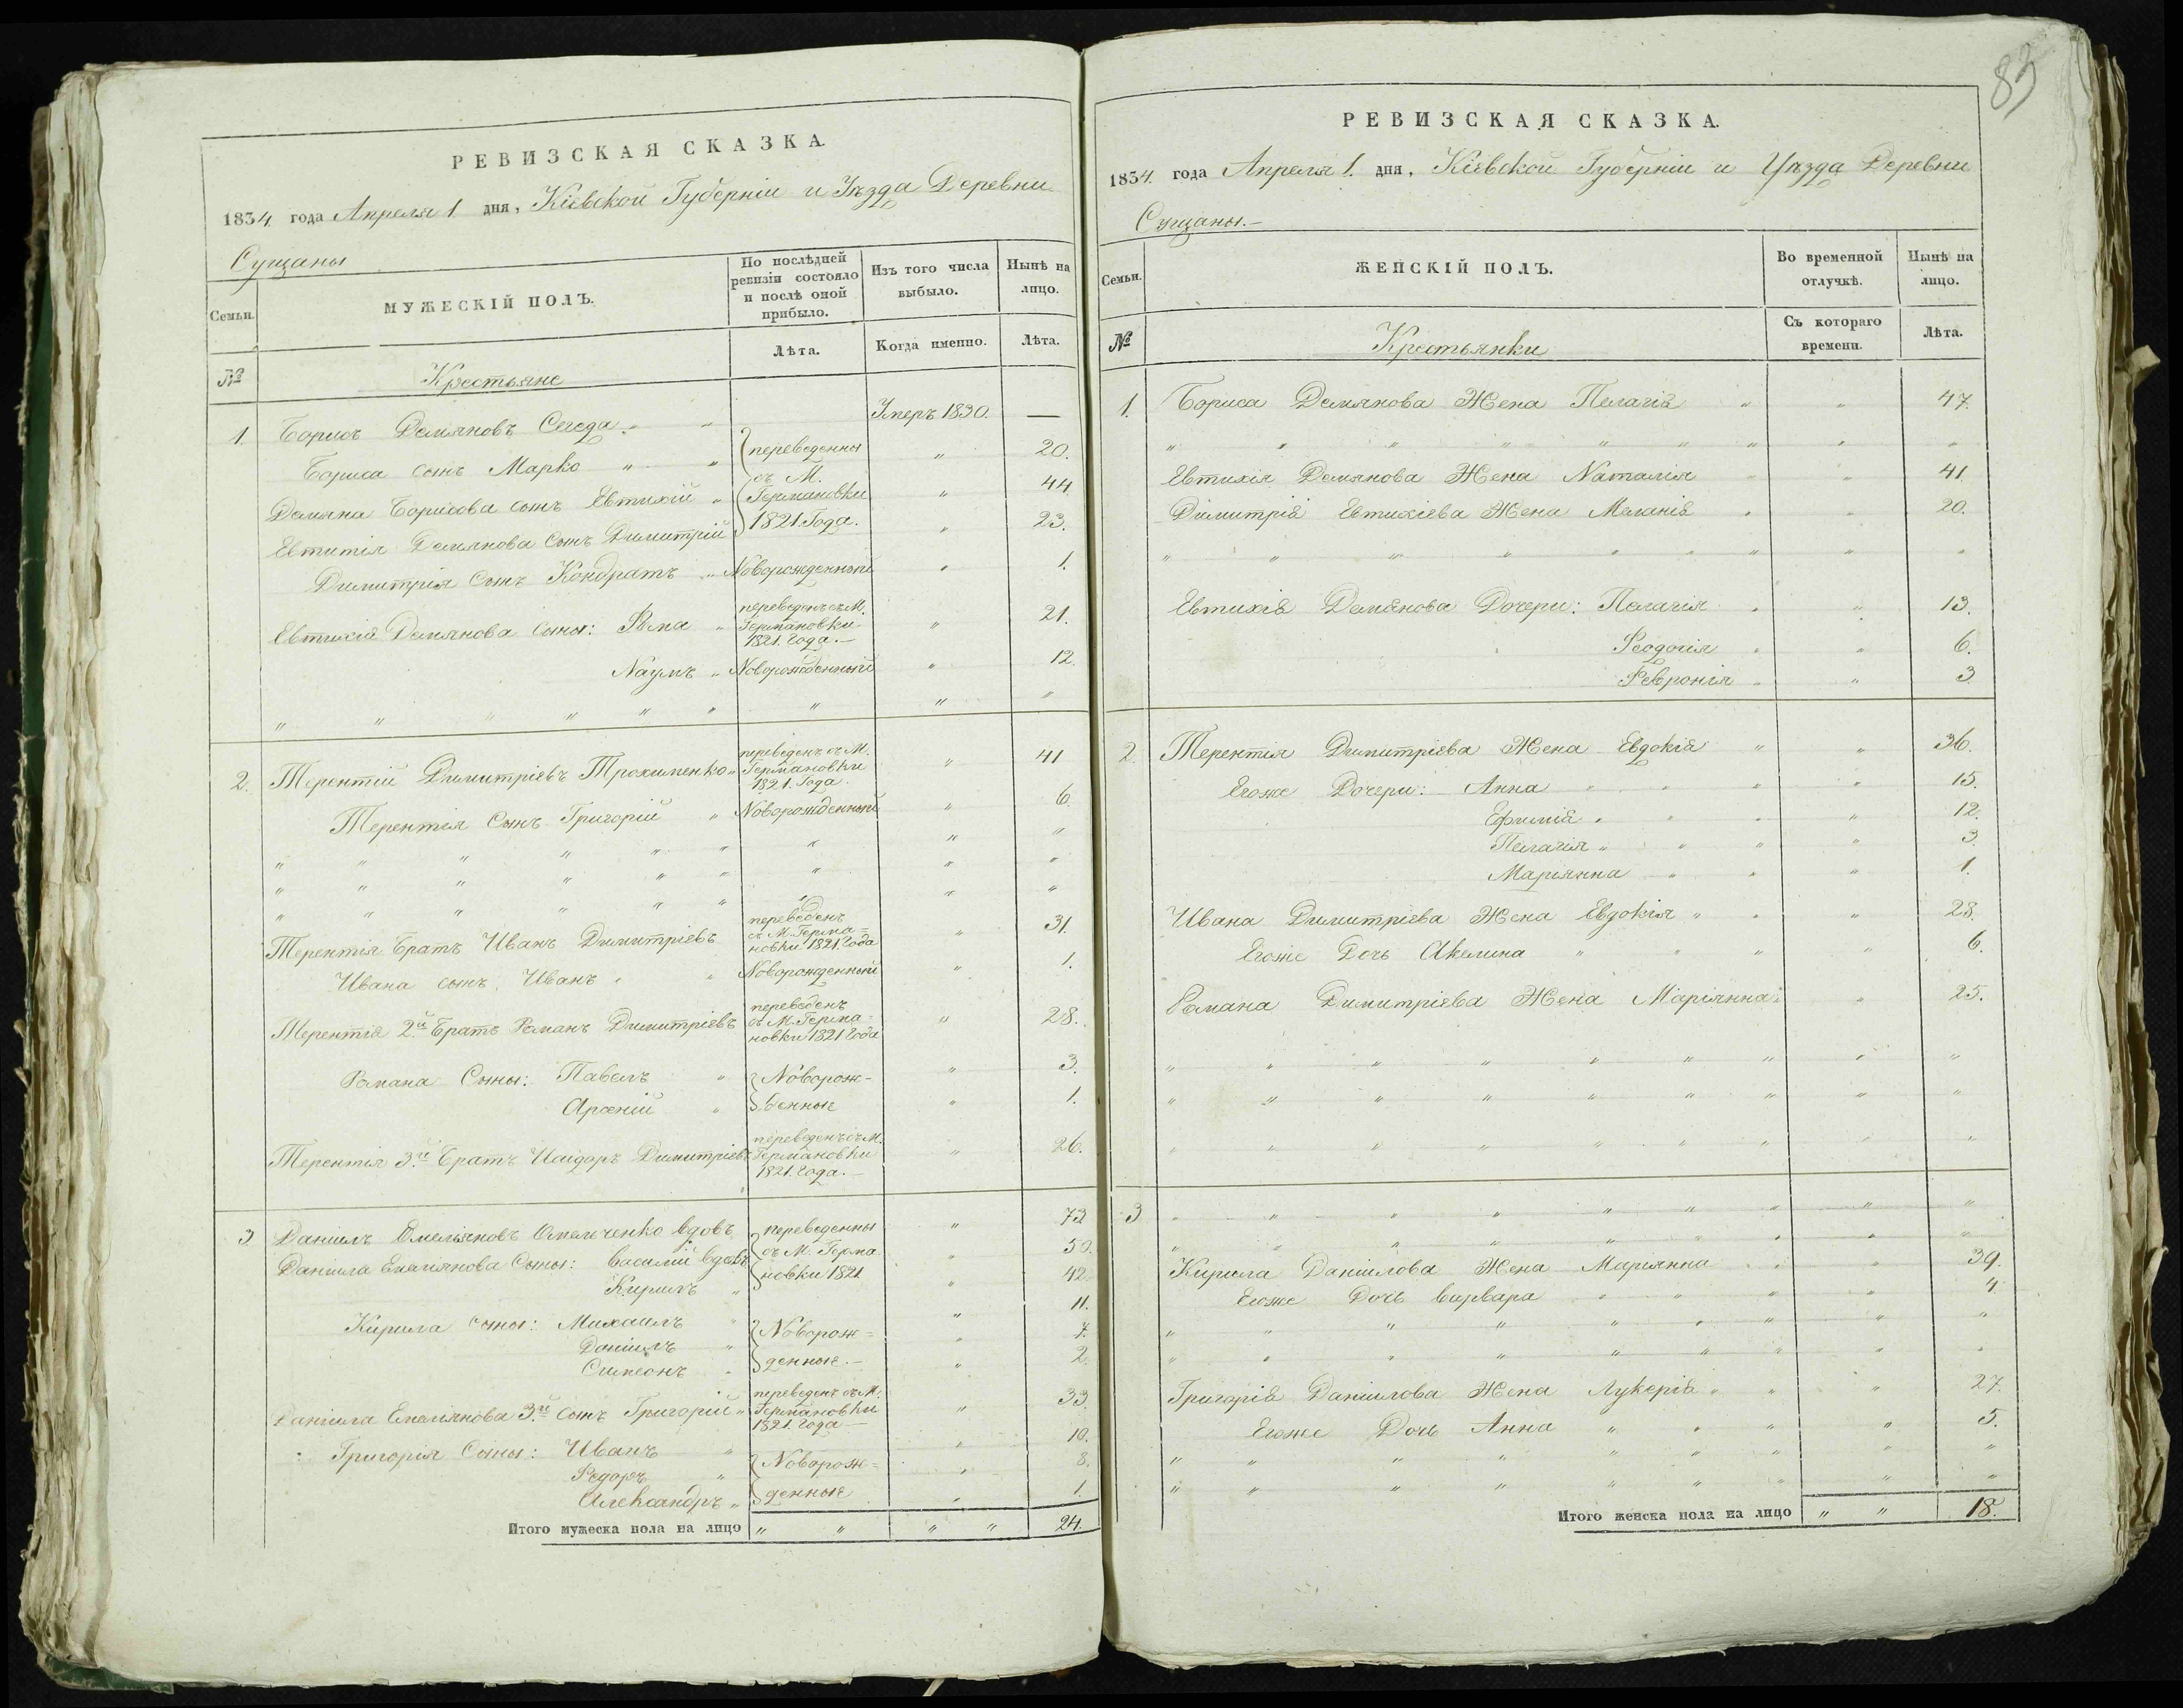 РЕВИЗСКАЯ СКАЗКА.
1834. года Апреля 1 дня, Кіевской Губерніи и Уѣзда Деревни
Сущаны
Семьи.
МУЖЕСКІЙ ПОЛЪ.
По послѣдней ревизіи состояло и послѣ оной прибыло.
Изъ того числа выбыло.
Нынѣ на лицо.
№
Крестьяне
Лѣта.
Когда именно.
Лѣта.
1. Борисъ Демяновъ Сегеда " " Умеръ 1830. —
Бориса сынъ Марко " " переведенны " 20.
Демяна Борисова сынъ Евтихій " съ М. Германовки " 44
Евтитія Демянова Сынъ Димитрій 1821. Года. " 23.
Димитрія Сынъ Кондратъ " Новорожденный " 1.
Евтихія Демянова сыны: Фома " переведенъ съ М. Германовки 1821. Года. — " 21.
Наумъ " Новорожденный " 12.
" " " " " " " " "
2. Терентій Димитріевъ Трохименко " переведенъ съ М. Германовки 1821. Года. " 41
Терентія Сынъ Григорій " Новорожденный " 6.
" " " " " " " " "
" " " " " " " " "
" " " " " " " " "
Терентія Братъ Иванъ Димитріевъ переведенъ съ М. Герма= новки 1821. Года " 31.
Ивана сынъ Иванъ " " Новорожденный " 1.
Терентія 2.й Братъ Романъ Димитріевъ переведенъ съ М. Герма= новки 1821 Года " 28.
Романа Сыны: Павелъ " Новорож- " 3.
Арсеній " денные " 1.
Терентія 3.й Братъ Исидоръ Димитріевъ переведенъ съ М. Германовки 1821. Года. — " 26.
3. Даніилъ Емельяновъ Омельченко вдовъ переведенны " 73
Даніила Емеліянова Сыны: Василій вдовъ съ М. Герма " 50.
Кирилъ " новки 1821 " 42
Кирила сыны: Михаилъ " " 11.
Даніилъ " Новорож= " 7.
Симеонъ " денные. — " 2.
Даніила Емеліянова 3.й сынъ Григорій " переведенъ съ М. Германовки 1821. Года — " 33.
Григорія Сыны: Иванъ " " 10.
Федоръ " Новорож= " 8.
Александръ " денные " 1.
Итого мужеска пола на лицо " " " " 24.
83
РЕВИЗСКАЯ СКАЗКА.
1834. года Апреля 1. дня, Кіевской Губерніи и Уѣзда Деревни
Сущаны. —
Семьи.
ЖЕНСКІЙ ПОЛЪ.
Во временной отлучкѣ.
Нынѣ на лицо.
№
Крестьянки
Съ котораго времени.
Лѣта.
1. Бориса Демянова Жена Пелагія " " 47.
" " " " " " " " "
Евтихія Демянова Жена Наталія " " 41.
Димитрія Евтихіева Жена Меланія " " 20.
" " " " " " " " "
Евтихія Демянова Дочери: Пелагія " " 13.
Феодосія " " 6.
Февронія " " 3
2. Терентія Димитріева Жена Евдокія " " 36.
Егоже Дочери: Анна " " " " 15.
Ефимія " " " " 12.
Пелагія " " " " 3.
Маріянна " " " 1.
Ивана Димитріева Жена Евдокія " " " 28.
Егоже Дочь Акелина " " " " 6.
Романа Димитріева Жена Маріянна " " 25.
" " " " " " " " "
" " " " " " " " "
" " " " " " " " "
3 " " " " " " " " "
" " " " " " " " "
Кирила Даніилова Жена Маріянна " " 39.
Егоже Дочь Варвара " " " " 4
" " " " " " " " "
" " " " " " " " "
Григорія Даніилова Жена Лукерія " " " 27.
Егоже Дочь Анна " " " " 5.
" " " " " " " " "
" " " " " " " " "
Итого женска пола на лицо " " 18.